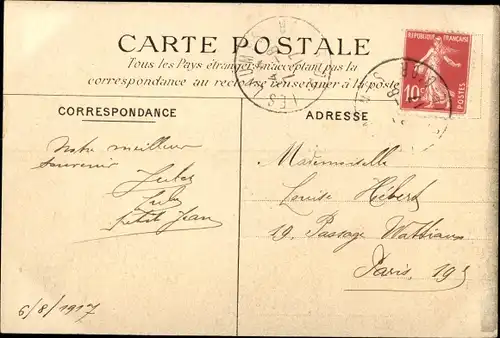 CARTE POSTALE
Tous les Pays étrangers n'acceptant pas la
correspondance au recto se renseigner à la poste
REPUBLIQUE FRANÇAISE
10c
POSTES
CORRESPONDANCE
Notre meilleur
souvenir
Jules
July
petit Jean
6/8/1917
ADRESSE
Mademoiselle
Louise Hébert
29. Passage Wattiaux
Paris. 19e